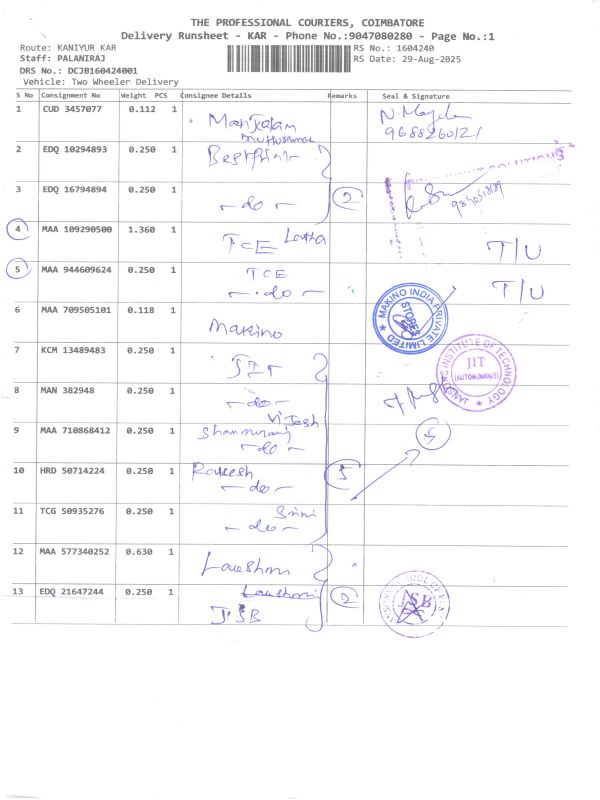 THE PROFESSIONAL COURIERS, COIMBATORE
Delivery Runsheet - KAR - Phone No.:9047080280 - Page No.:1
Route: KANIYUR KAR RS No.: 1604240
Staff: PALANIRAJ RS Date: 29-Aug-2025
DRS No.: DCJB160424001
Vehicle: Two Wheeler Delivery
S No Consignment No Weight PCS Consignee Details Remarks Seal & Signature
1 CUD 3457077 0.112 1 Manikalam
9688260121
2 EDQ 10294893 0.250 1 Bestprint
3 EDQ 16794894 0.250 1 - do - 2
4 MAA 109290500 1.360 1 TCE Latha T/U
5 MAA 944609624 0.250 1 TCE
- do - T/U
6 MAA 709505101 0.118 1 Makino
MAKINO INDIA PRIVATE LIMITED
STORES
7 KCM 13489483 0.250 1 JIT
JANSONS INSTITUTE OF TECHNOLOGY
JIT
(AUTONOMOUS)
8 MAN 382948 0.250 1 - do -
9 MAA 710868412 0.250 1 Shanmugaraj
- do -
10 HRD 50714224 0.250 1 Rakesh
- do - 5
11 TCG 50935276 0.250 1 Srini
- do -
12 MAA 577340252 0.630 1 Laxshmi
13 EDQ 21647244 0.250 1 Laxshmi 2
JSB
JSB